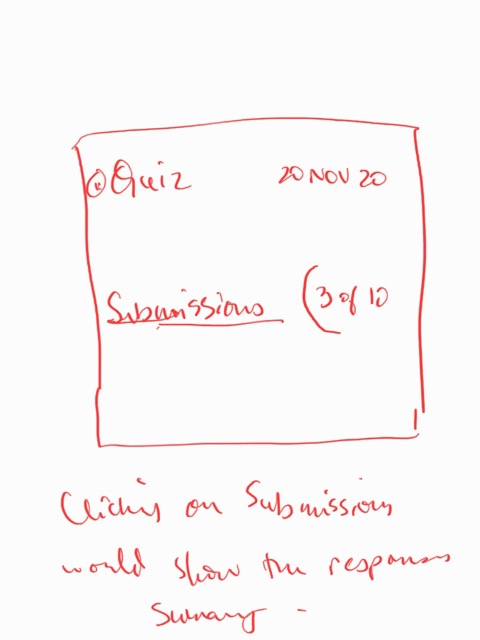 Quiz 20 NOV 20
Submissions (3 of 10
Clicking on Submissions
would show the responses
Summary -